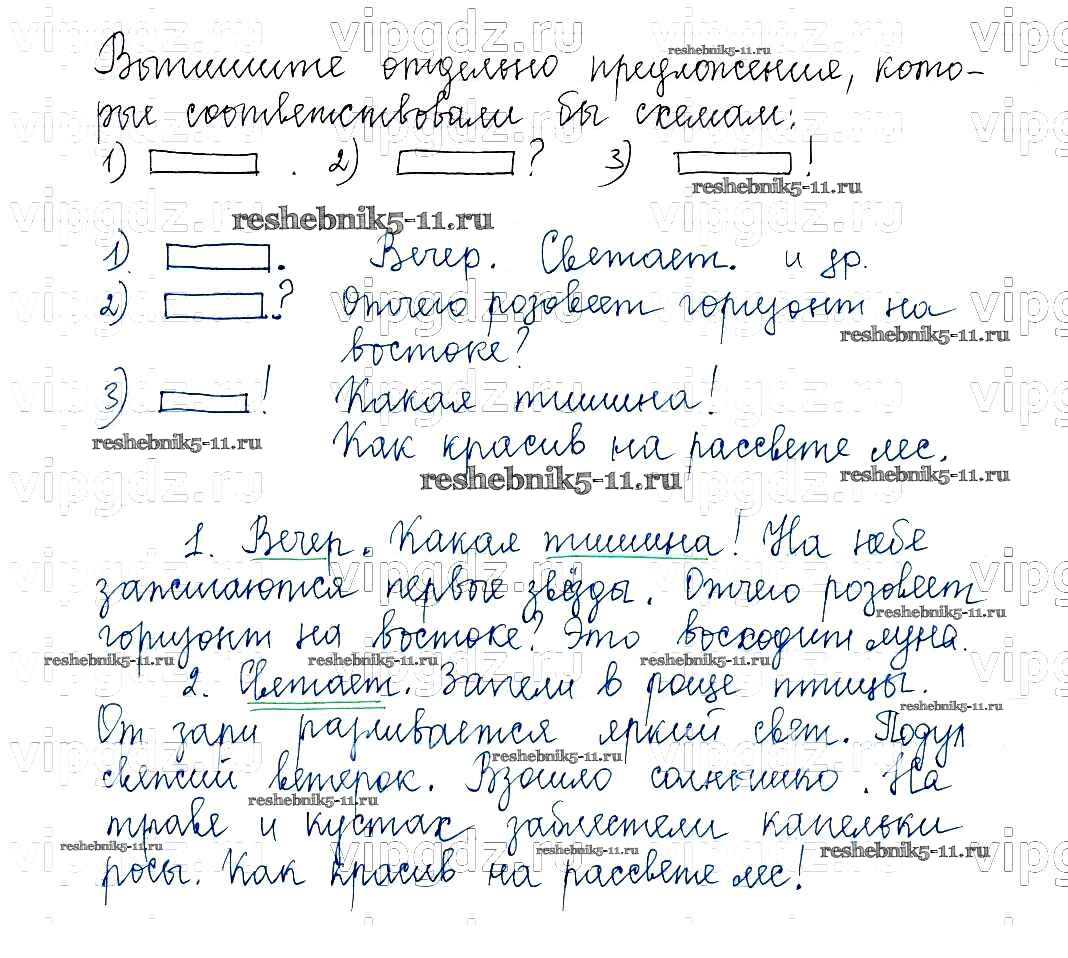 Выпишите отдельно предложения, кото-
рые соответствовали бы схемам:
1) . 2) ? 3) !
1). . Вечер. Светает. и др.
2) ? Отчего розовеет горизонт на
востоке?
3) ! Какая тишина!
Как красив на рассвете лес.
1. Вечер. Какая тишина! На небе
зажигаются первые звёзды. Отчего розовеет
горизонт на востоке? Это восходит луна.
2. Светает. Запели в роще птицы.
От зари разливается яркий свет. Подул
свежий ветерок. Взошло солнышко. На
траве и кустах заблестели капельки
росы. Как красив на рассвете лес!
vipgdz.ru
reshebnik5-11.ru